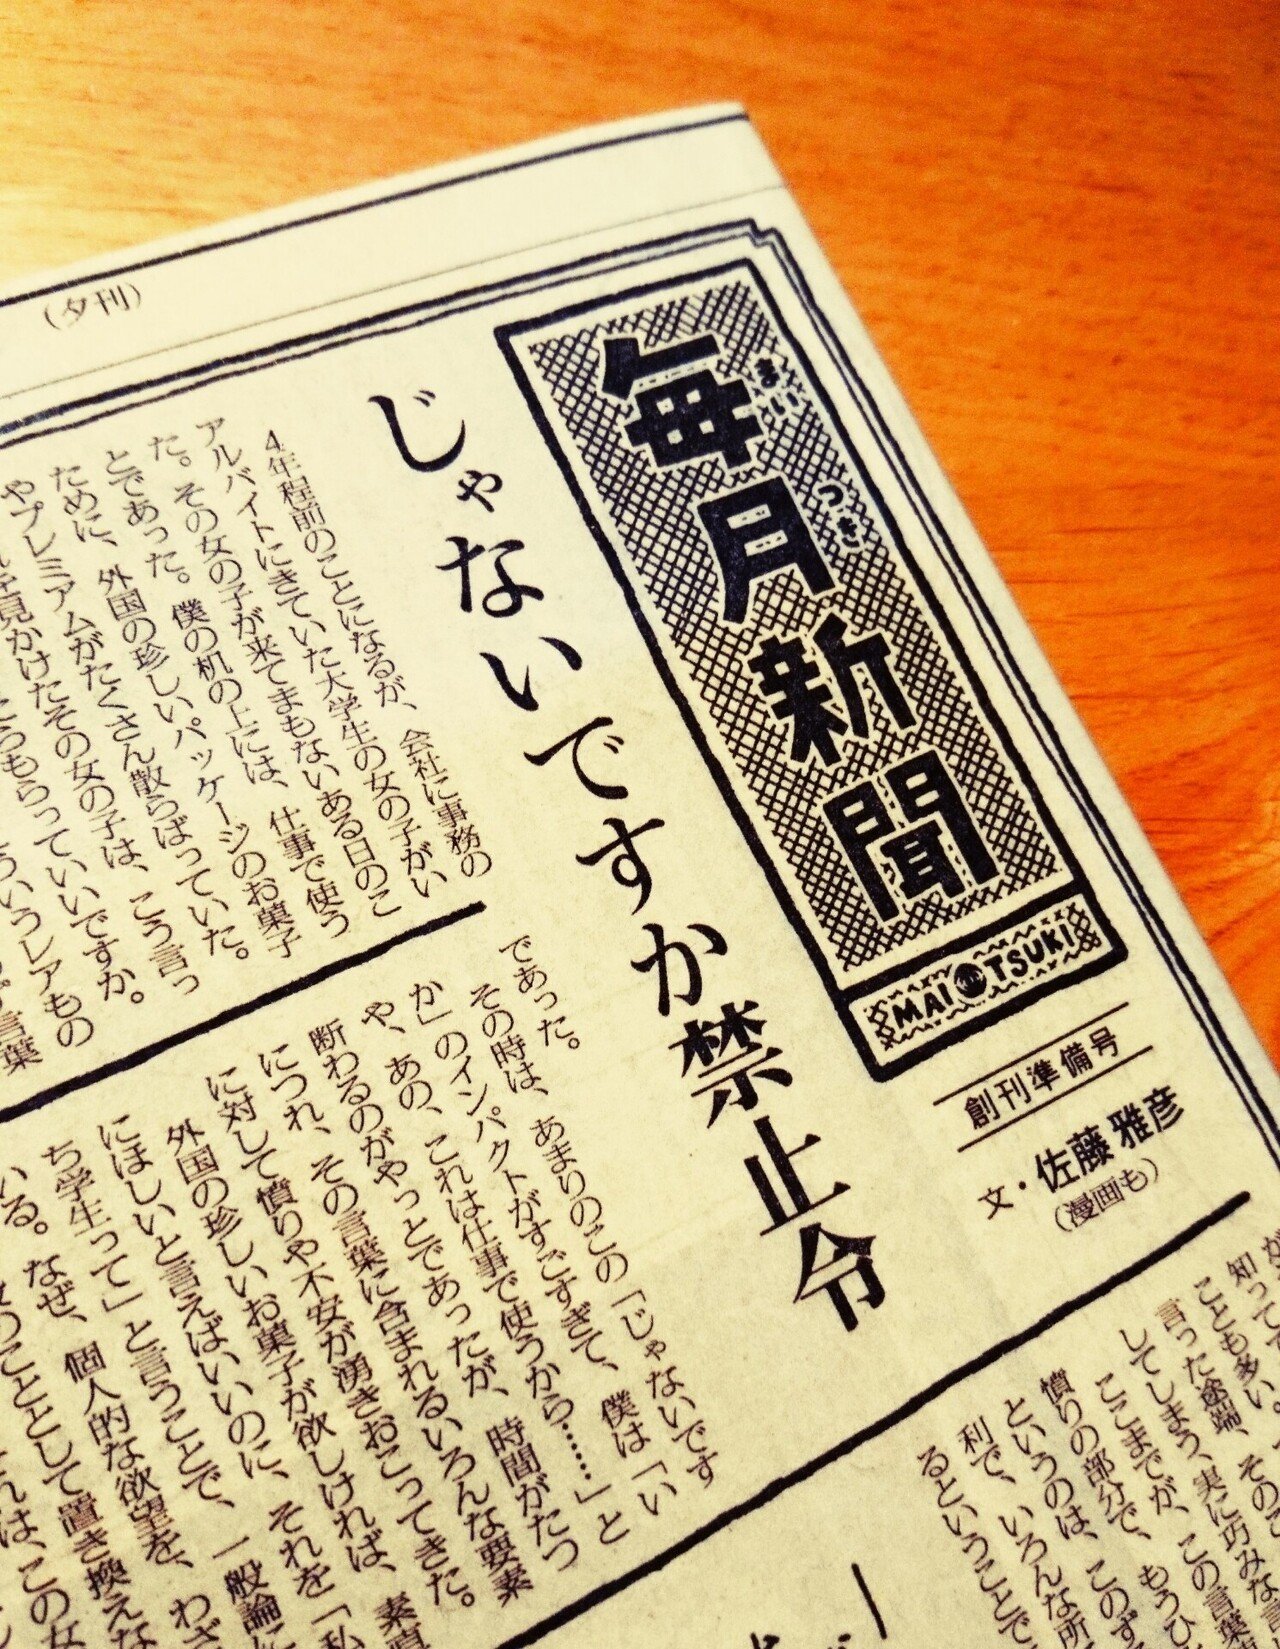 （夕刊）
毎月新聞
まいつき
MAI TSUKI
創刊準備号
文・佐藤雅彦
（漫画も）
じゃないですか禁止令
4年程前のことになるが、会社に事務の
アルバイトにきていた大学生の女の子がい
た。その女の子が来てまもないある日のこ
とであった。僕の机の上には、仕事で使う
ために、外国の珍しいパッケージのお菓子
やプレミアムがたくさん散らばっていた。
を見かけたその女の子は、こう言っ
もらっていいですか。
ういうレアもの
言葉
であった。
その時は、あまりのこの「じゃないです
か」のインパクトがすごすぎて、僕は「い
や、あの、これは仕事で使うから……」と
断わるのがやっとであったが、時間がたつ
につれ、その言葉に含まれるいろんな要素
に対して憤りや不安が湧きおこってきた。
外国の珍しいお菓子が欲しければ、素直
にほしいと言えばいいのに、それを「私
ち学生って」と言うことで、一般論に
いる。なぜ、個人的な欲望を、わざ
のこととして置き換えな
れは、この女
知ってて
ことも多い。
言った途端、その
してしまう、実に巧みな言
ここまでが、この言葉
憤りの部分で、もうひ
というのは、このず
利で、いろんな所
るということで